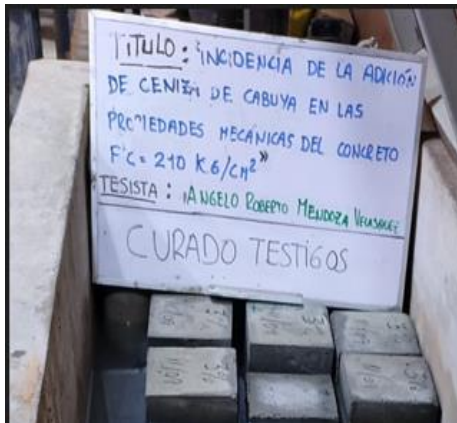 TITULO: "INCIDENCIA DE LA ADICIÓN
DE CENIZA DE CABUYA EN LAS
PROPIEDADES MECÁNICAS DEL CONCRETO
F'C = 210 KG/CM²"
TESISTA: ANGELO ROBERTO MENDOZA VELASQUEZ
CURADO TESTIGOS